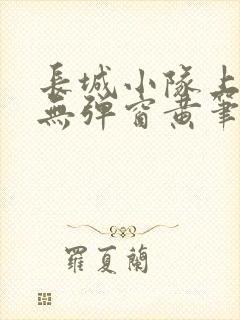 長城小隊上
無彈窗黃筆
羅夏蘭